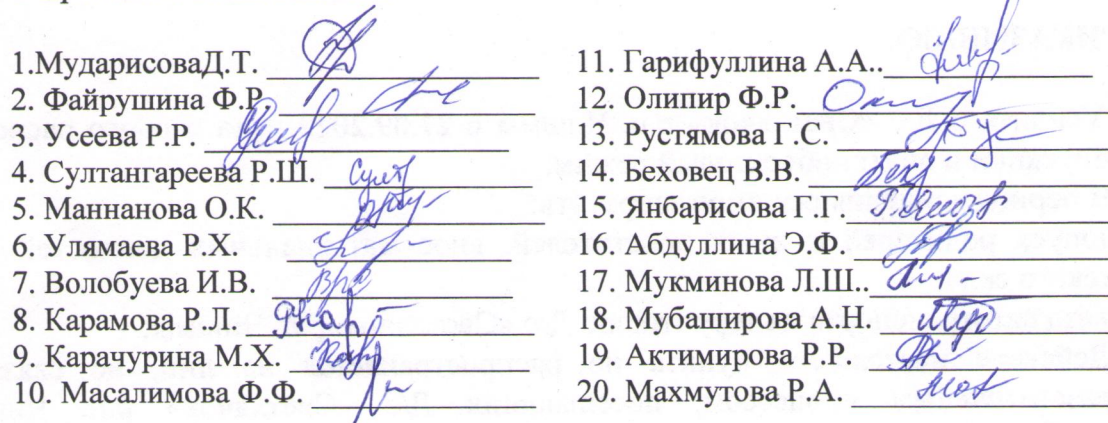 1.МударисоваД.Т.
2. Файрушина Ф.Р.
3. Усеева Р.Р.
4. Султангареева Р.Ш.
5. Маннанова О.К.
6. Улямаева Р.Х.
7. Волобуева И.В.
8. Карамова Р.Л.
9. Карачурина М.Х.
10. Масалимова Ф.Ф.
11. Гарифуллина А.А..
12. Олипир Ф.Р.
13. Рустямова Г.С.
14. Беховец В.В.
15. Янбарисова Г.Г.
16. Абдуллина Э.Ф.
17. Мукминова Л.Ш..
18. Мубаширова А.Н.
19. Актимирова Р.Р.
20. Махмутова Р.А.